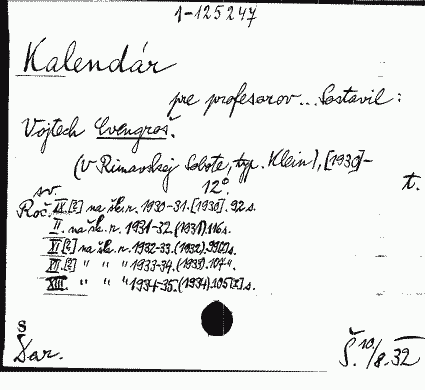 1-125247
Kalendár
pre profesorov... Sostavil:
Vojtech Cvengroš.
(V Rimavskej Sobote, typ. Klein), [1930]-
sv. 12°. t.
Roč. IX.[?] na šk. r. 1930-31. [1930]. 92 s.
II. na šk. r. 1931-32. (1931). 116 s.
XI [?] na šk. r. 1932-33. (1932).
XII. [?] " " " 1933-34. (1933). 104 "
XIII. " " " 1934-35. (1934). 105 [2] s.
S
Dar.
Š. 10/8. 32